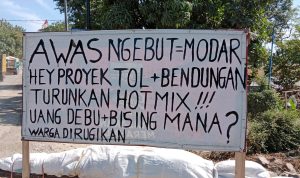 AWAS NGEBUT=MODAR
HEY PROYEK TOL + BENDUNGAN
TURUNKAN HOTMIX !!!
UANG DEBU+BISING MANA ?
WARGA DIRUGIKAN